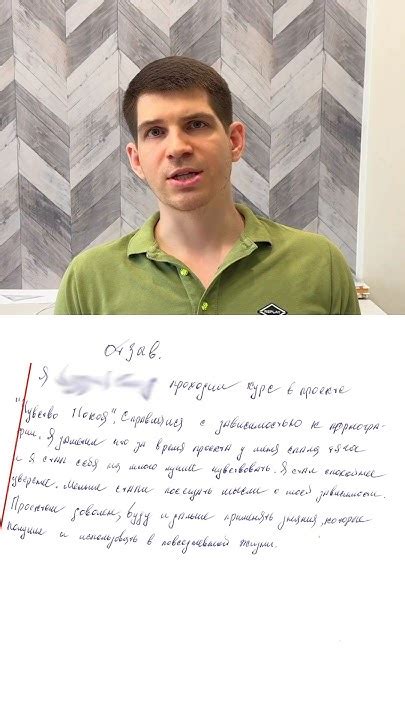 REPLAY
отзыв.
Я проходил курс в проекте
"Чувство Покоя". Справлялся с зависимостью к порногра-
фии. Я заметил что за время проекта у меня спала тяга
и я стал себя на много лучше чувствовать. Я стал спокойнее
увереннее. Меньше стали посещать мысли о моей зависимости.
Проектом доволен, буду и дальше применять знания, которые
получил и использовать в повседневной жизни.